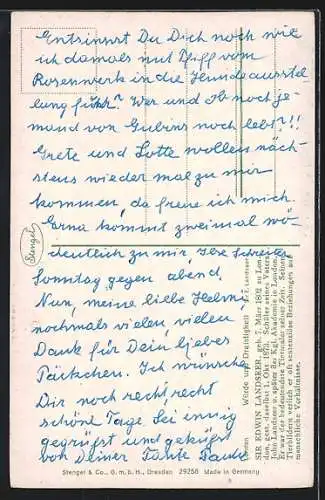 Entsinnst Du Dich noch wie
ich damals mit Pfiff vom
Rosenwerk in die Hundeausstel
lung fuhr? Wer und Ob noch je-
mand von Gubins noch lebt?!!
Grete und Lotte wollen näch-
stens wieder mal zu mir
kommen, da freue ich mich.
Erna kommt zweimal wö-
chentlich zu mir, Ilse
Sonntag gegen abend.
Nun, meine liebe Helm,
nochmals vielen, vielen
Dank für Dein liebes
Päckchen. Ich wünsche
Dir noch recht recht
schöne Tage bei innig
gegrüßt und geküßt
von Deiner Tante Paula
Stengel
Würde und Dreistigkeit
E. Landseer
SIR EDWIN LANDSEER, geb. 7. März 1802 zu Lon-
don, gest. daselbst 1. Okt. 1873. Schüler seines Vaters
John Landseer u. später der Kgl. Akademie zu London.
Er war der bedeutendste Tiermaler seiner Zeit. Seinen
Tierbildern verlieh er oft Beziehungen auf
menschliche Verhältnisse.
Stengel & Co., G. m. b. H., Dresden 29258 Made in Germany